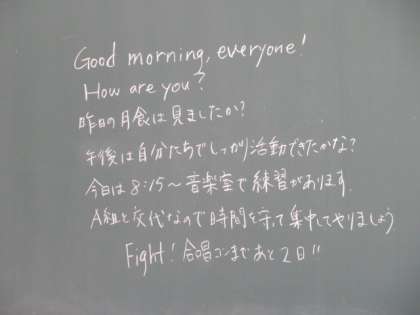 Good morning, everyone!
How are you?
昨日の月食は見ましたか?
午後は自分たちでしっかり活動できたかな?
今日は8:15～音楽室で練習があります.
A組と交代なので時間を守って集中してやりましょう
Fight! 合唱コンまであと2日!!